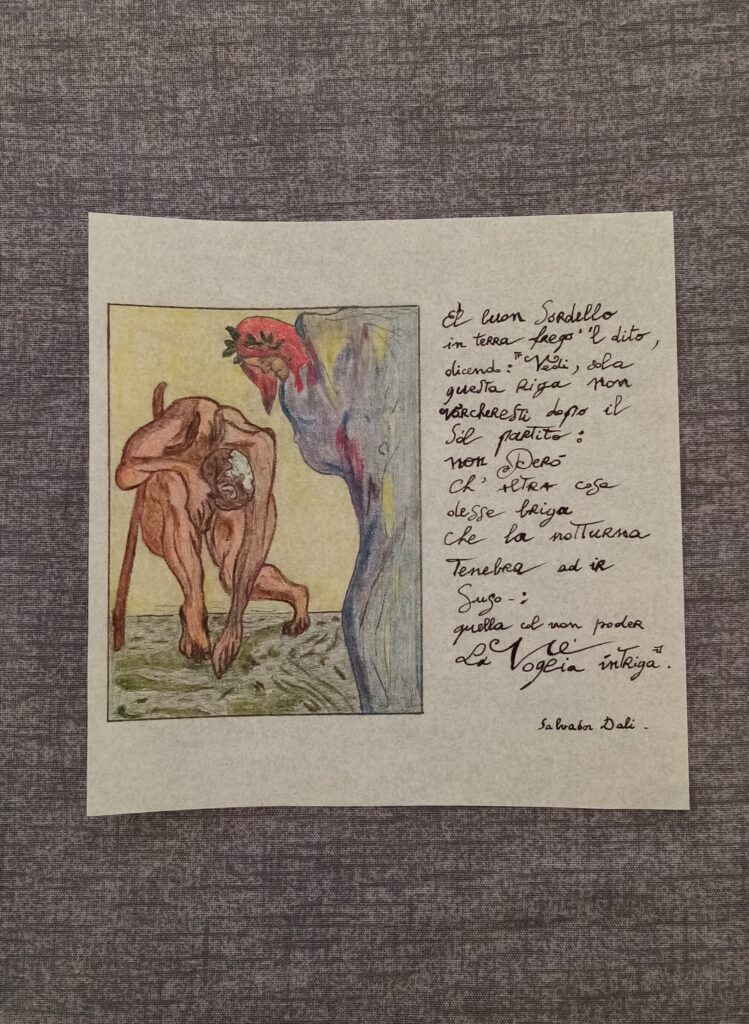 El buon Sordello
in terra fregò 'l dito,
dicendo: "Vedi, sola
questa riga non
varcheresti dopo il
Sol partito:
non Però
ch'altra cosa
desse briga
che la notturna
Tenebra ad ir
Suso-:
quella col non poder
La Voglia intriga".
Salvador Dalì -